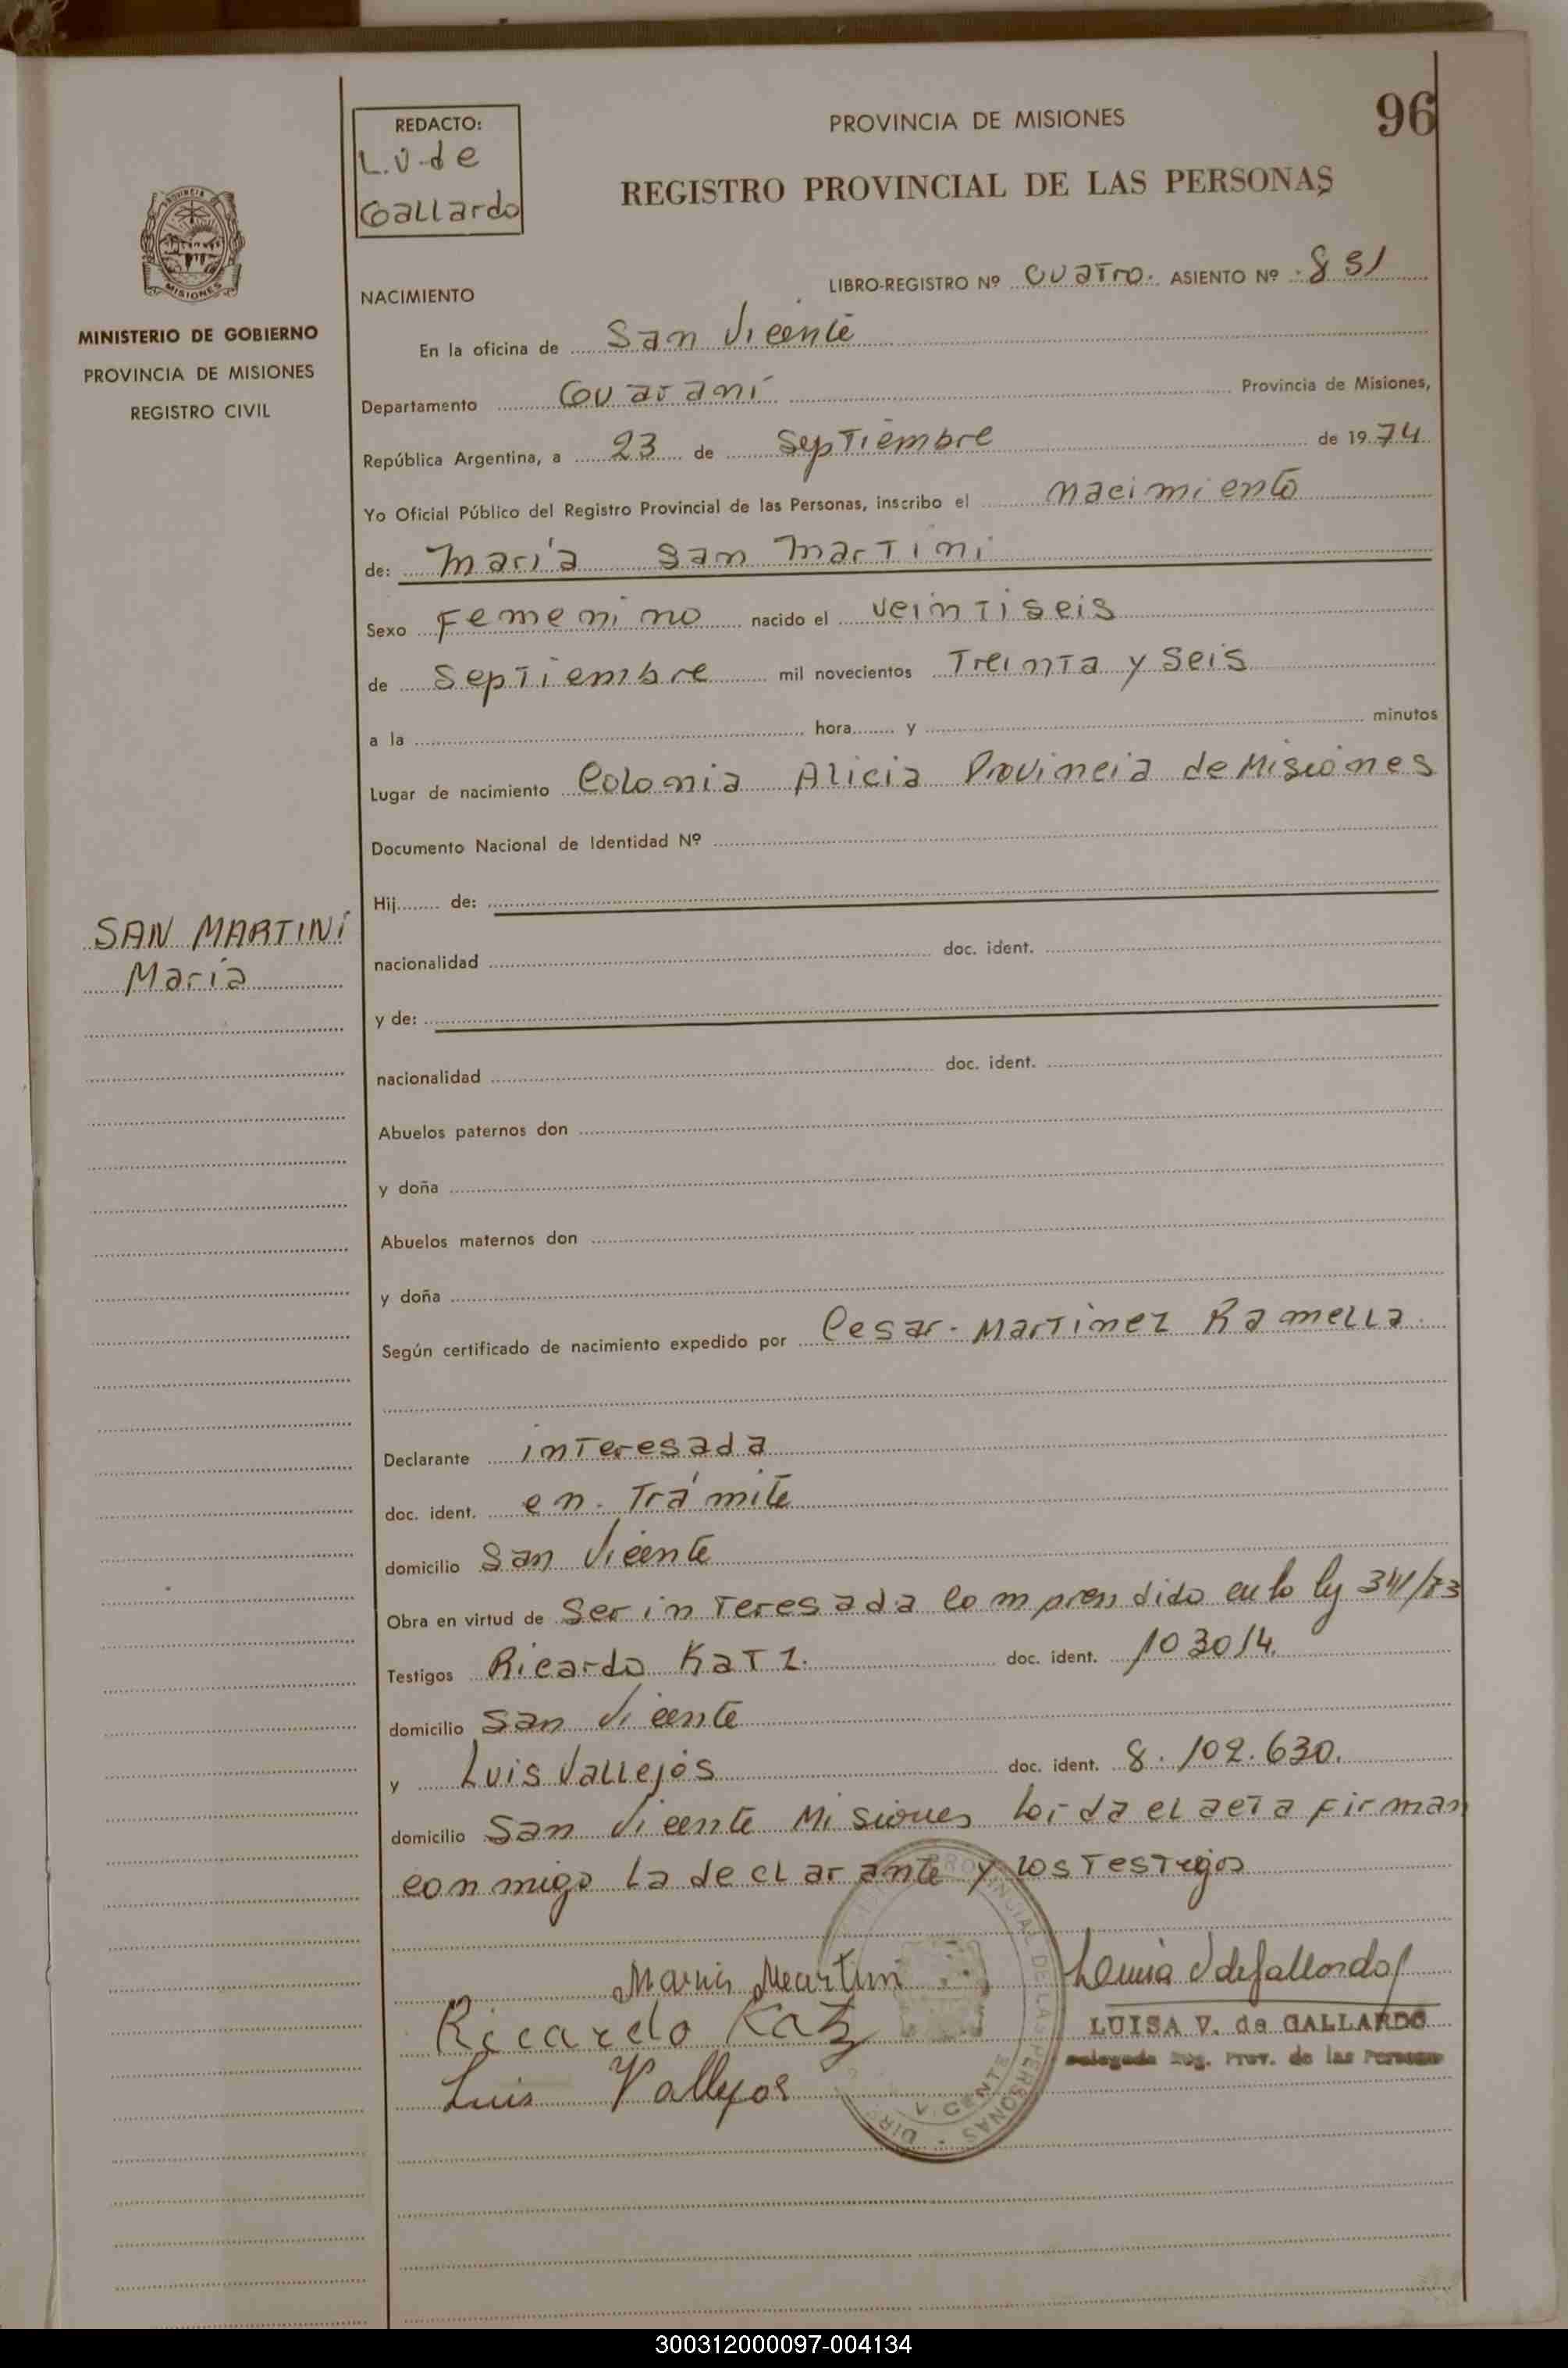 96
REDACTO:
L.V. de
Gallardo
PROVINCIA DE MISIONES
REGISTRO PROVINCIAL DE LAS PERSONAS
PROVINCIA
MISIONES
MINISTERIO DE GOBIERNO
PROVINCIA DE MISIONES
REGISTRO CIVIL
NACIMIENTO
LIBRO-REGISTRO Nº cuatro. ASIENTO Nº
En la oficina de San Vicente
Departamento Guaraní Provincia de Misiones,
República Argentina, a 23 de Septiembre de 1974
Yo Oficial Público del Registro Provincial de las Personas, inscribo el nacimiento
de: María San Martini
Sexo Femenino nacido el veintiseis
de Septiembre mil novecientos Treinta y Seis
a la hora y minutos
Lugar de nacimiento Colonia Alicia Provincia de Misiones
Documento Nacional de Identidad Nº
Hij de:
SAN MARTINÍ
María
nacionalidad doc. ident.
y de:
nacionalidad doc. ident.
Abuelos paternos don
y doña
Abuelos maternos don
y doña
Según certificado de nacimiento expedido por Cesar. Martinez Ramella.
Declarante interesada
doc. ident. en. Trámite
domicilio San Vicente
Obra en virtud de Ser interesada comprendido en la ley 341/73
Testigos Ricardo Katz. doc. ident. 103014.
domicilio San Vicente
y Luis Vallejos doc. ident. 8.102.630.
domicilio San Vicente Misiones leida el acta firman
conmigo la declarante y los testigos
Maria Martini
Ricardo Katz
Luis Vallejos
Luisa V de Gallardo
LUISA V. de GALLARDO
Delegada Reg. Prov. de las Personas
300312000097-004134